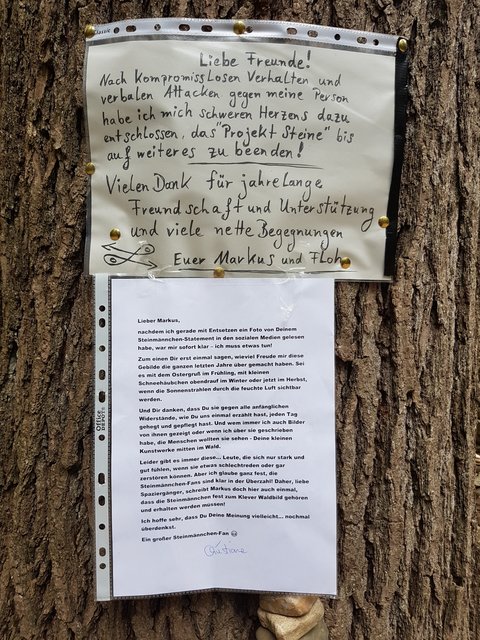 Liebe Freunde!
Nach Kompromisslosen Verhalten und
verbalen Attacken gegen meine Person
habe ich mich schweren Herzens dazu
entschlossen, das "Projekt Steine" bis
auf weiteres zu beenden!
Vielen Dank für jahrelange
Freundschaft und Unterstützung
und viele nette Begegnungen
Euer Markus und Floh
Lieber Markus,
nachdem ich gerade mit Entsetzen ein Foto von Deinem
Steinmännchen-Statement in den sozialen Medien gelesen
habe, war mir sofort klar – ich muss etwas tun!
Zum einen Dir erst einmal sagen, wieviel Freude mir diese
Gebilde die ganzen letzten Jahre über gemacht haben. Sei
es mit dem Ostergruß im Frühling, mit kleinen
Schneehäubchen obendrauf im Winter oder jetzt im Herbst,
wenn die Sonnenstrahlen durch die feuchte Luft sichtbar
werden.
Und Dir danken, dass Du sie gegen alle anfänglichen
Widerstände, wie Du uns einmal erzählt hast, jeden Tag
gehegt und gepflegt hast. Und wem immer ich auch Bilder
von ihnen gezeigt oder wenn ich über sie geschrieben
habe, die Menschen wollten sie sehen - Deine kleinen
Kunstwerke mitten im Wald.
Leider gibt es immer diese... Leute, die sich nur stark und
gut fühlen, wenn sie etwas schlechtreden oder gar
zerstören können. Aber ich glaube ganz fest, die
Steinmännchen-Fans sind klar in der Überzahl! Daher, liebe
Spaziergänger, schreibt Markus doch hier auch einmal,
dass die Steinmännchen fest zum Klever Waldbild gehören
und erhalten werden müssen!
Ich hoffe sehr, dass Du Deine Meinung vielleicht... nochmal
überdenkst.
Ein großer Steinmännchen-Fan 😉
Christiane
Office